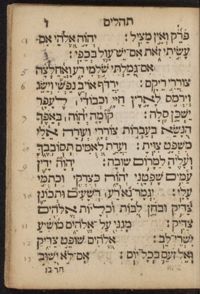 תהלים
פרק ואין מציל: יהוה אלהי אם
עשיתי זאת אם יש עול בכפי:
אם גמלתי שלמי רע ואחלצה
צוררי ריקם: ירדף אויב נפשי וישג
וירמס לארץ חיי וכבודי לעפר
ישכן סלה: קומה יהוה באפך
הנשא בעברות צוררי ועורה אלי
משפט צוית: ועדת לאמים תסובבך
ועליה למרום שובה: יהוה ידין
עמים שפטני יהוה כצדקי וכתמי
עלי: יגמר נא רע רשעים ותכונן
צדיק ובחן לבות וכליות אלהים
צדיק: מגני על אלהים מושיע
ישרי לב: אלהים שופט צדיק
ואל זעם בכל יום: אם לא ישוב
חרבו